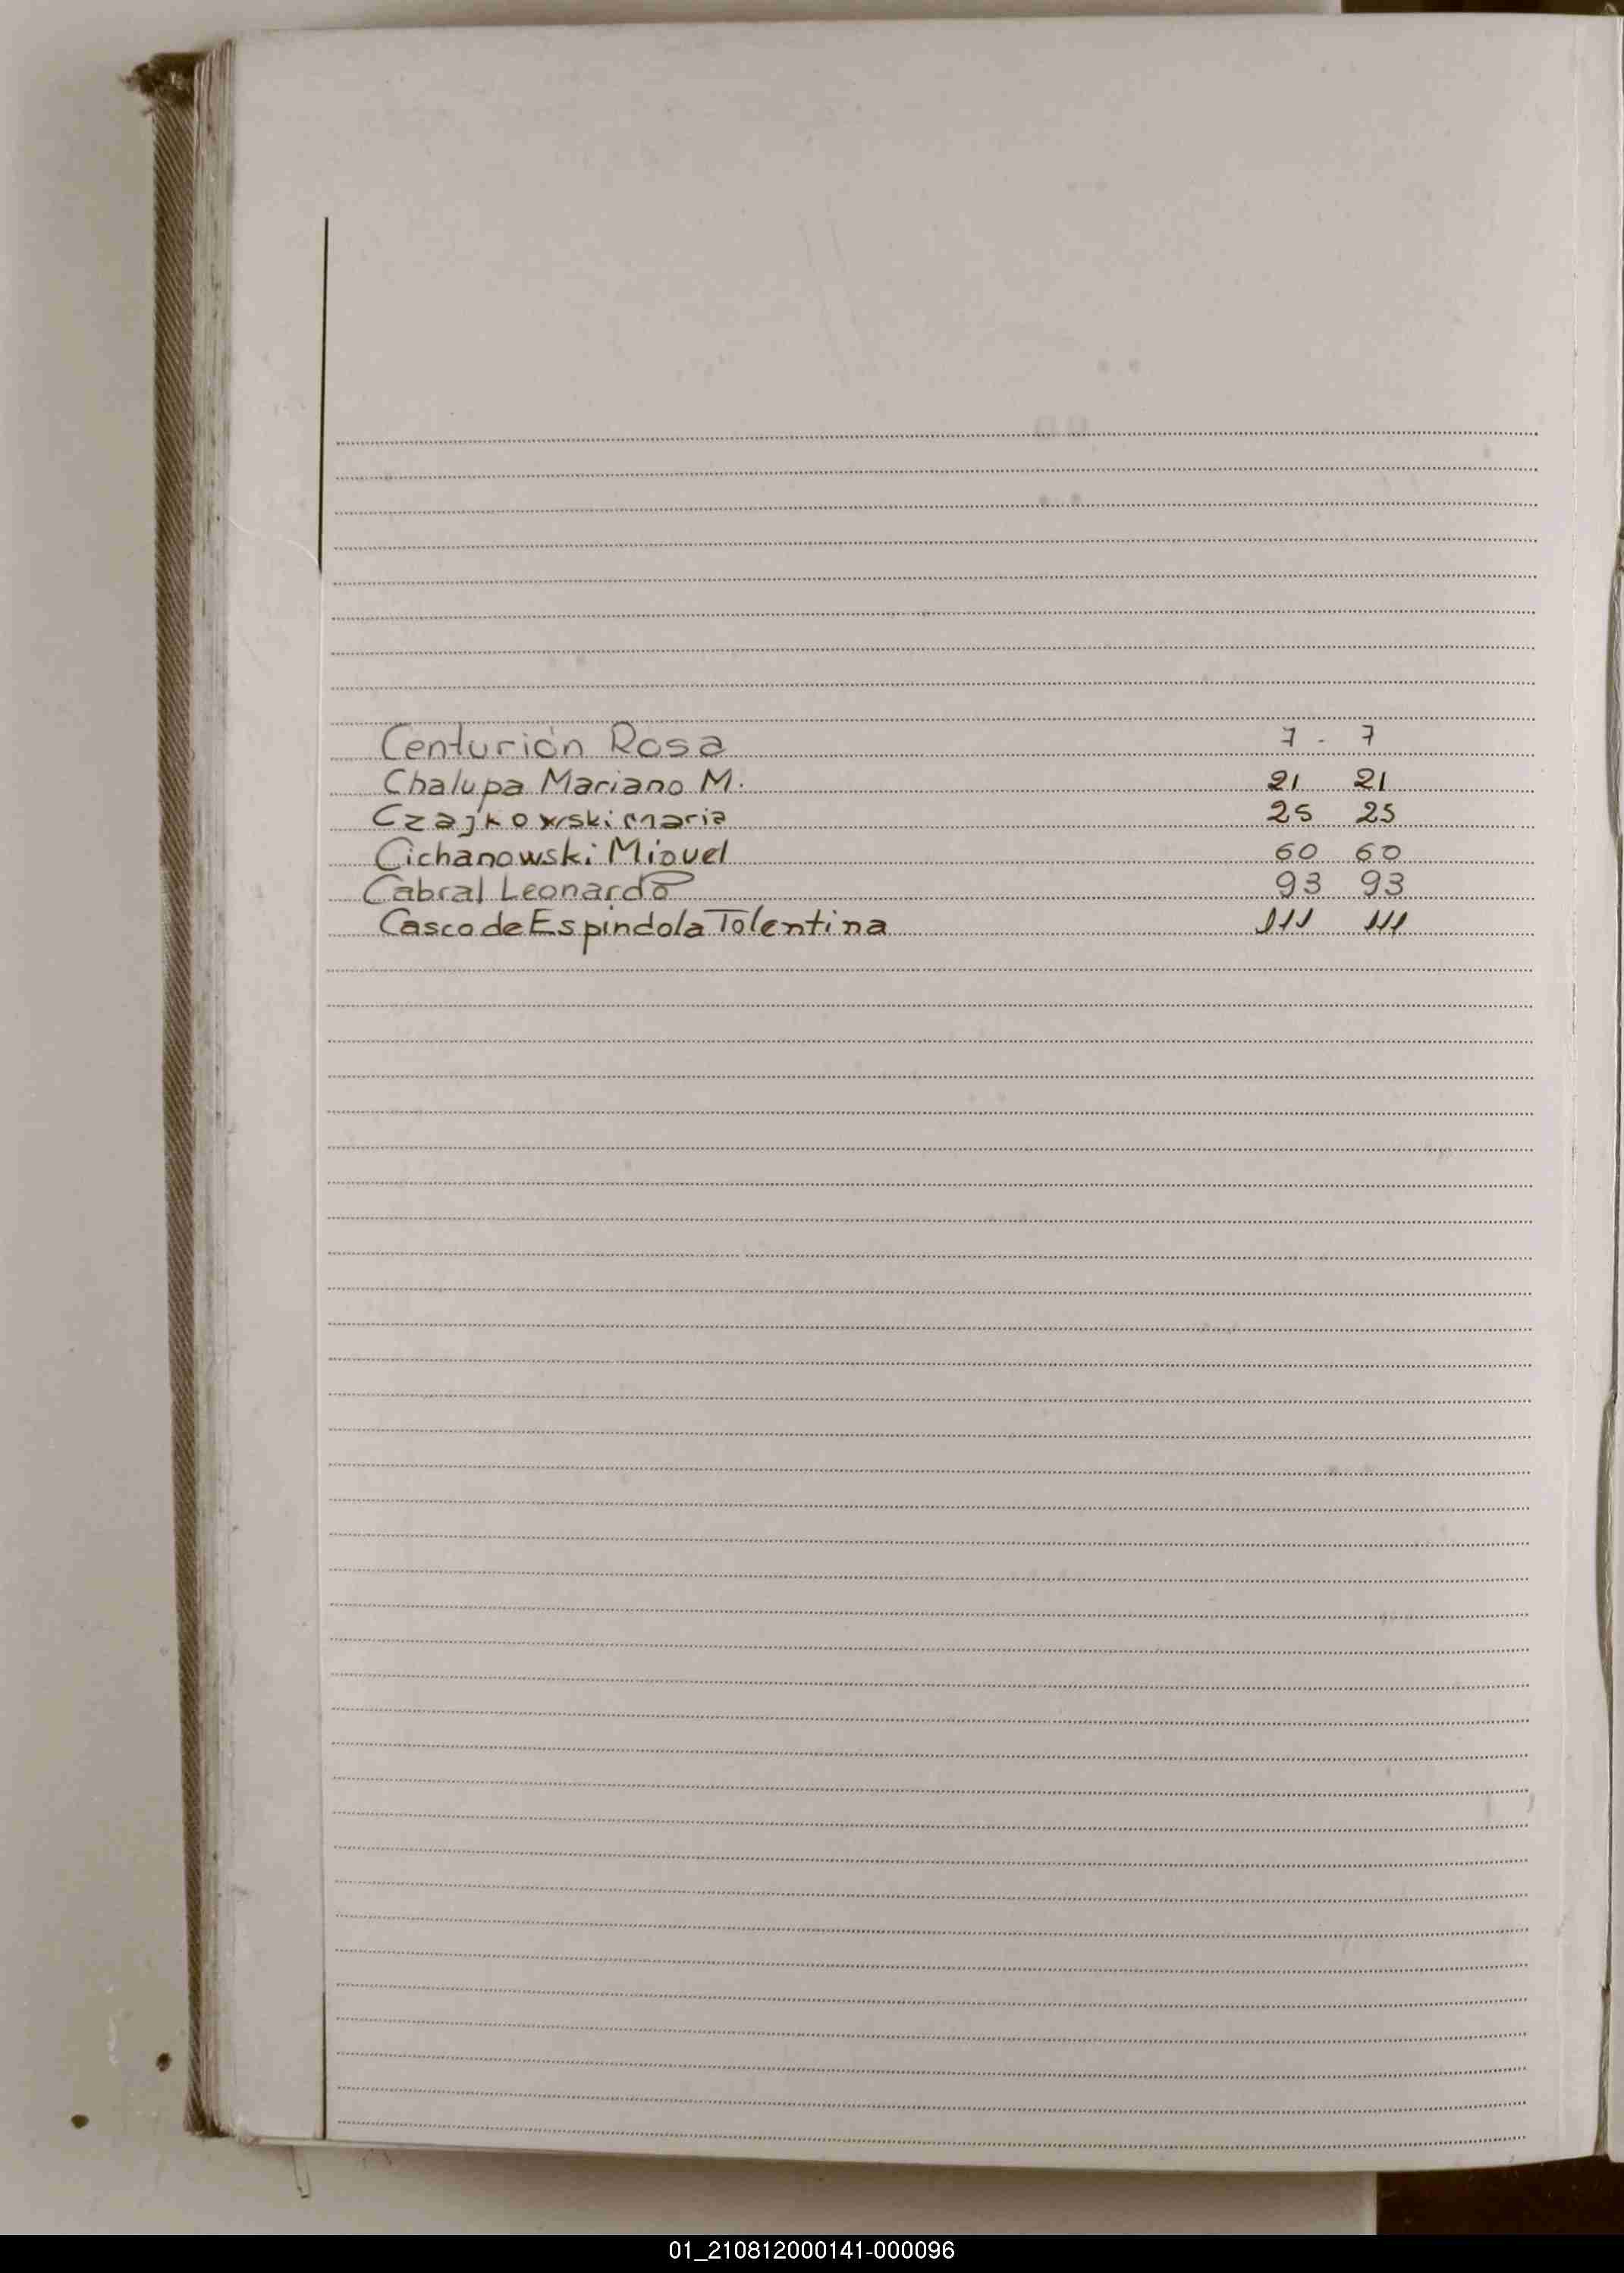 Centurión Rosa 7 - 7
Chalupa Mariano M. 21 21
Czajkowski Maria 25 25
Cichanowski Miguel 60 60
Cabral Leonardo 93 93
Casco de Espindola Tolentina 111 111
01_210812000141-000096